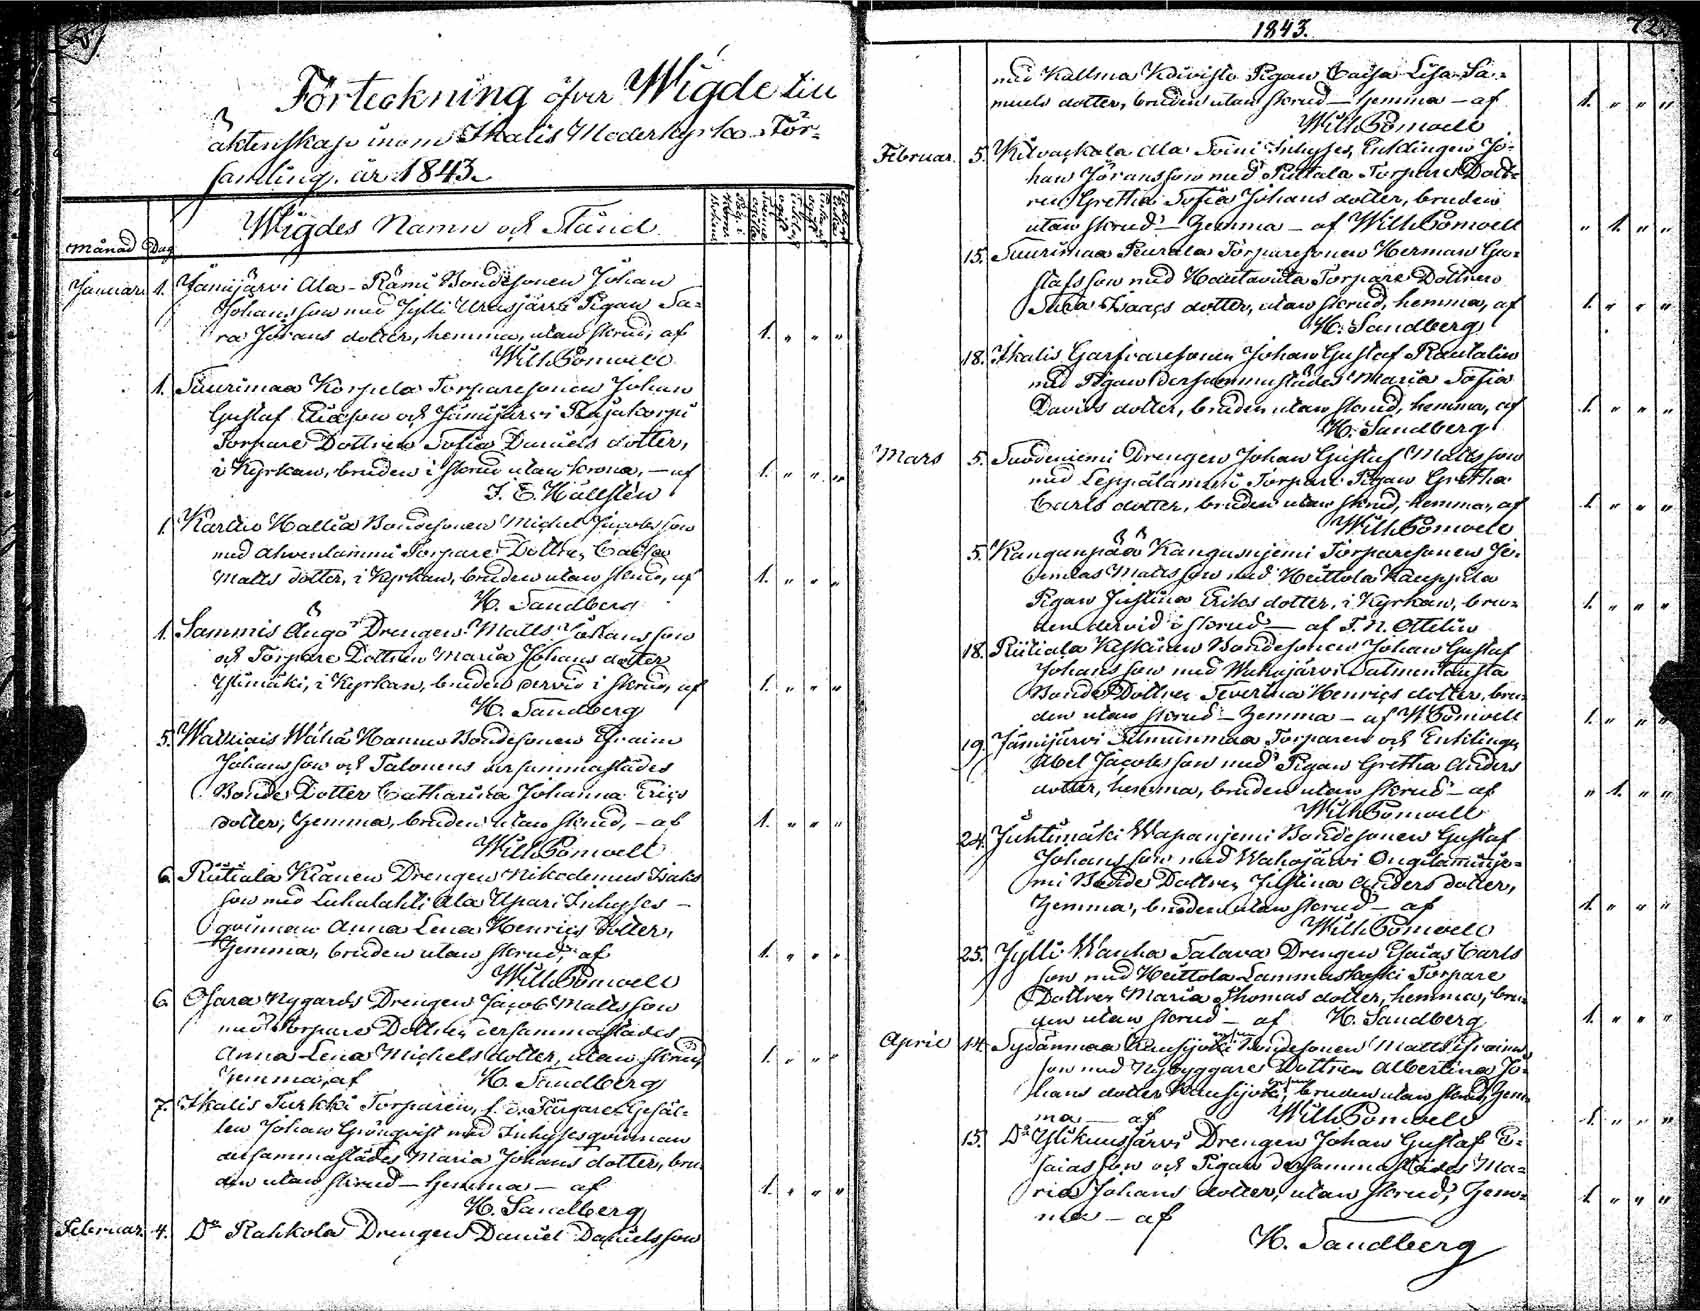 Förteckning öfver Wigde till
äktenskap inom Ikalis Moderkyrko För-
samling år 1843.
Månad Dag Wigdes Namn och Stånd
Januari 1. Jämijärvi Ala-Rämi Bondesonen Johan
Johansson med Jylli Pigan Sa-
ra Johans dotter, hemma, utan skrud, af 1. „ „ „
Wilh Pomoell
1. Suurimaa Korpela Torparesonen Johan
Gustaf Ericsson och Jämijärvi
Torpare Dottren Sofia Daniels dotter,
i Kyrkan, bruden i skrud utan krona, – af 1. „ „ „
F. E. Hällsten
1. Kartu Hallia Bondesonen Michel Jacobsson
med Ahvenlammi Torpare Dottren Caisa
Matts dotter, i Kyrkan, bruden utan skrud, af 1. „ „ „
H. Sandberg
1. Sammis Ängö Drengen Matts Johansson
och Torpare Dottren Maria Johans dotter
Ylimäki, i Kyrkan, bruden dervid i skrud, af 1. „ „ „
H. Sandberg
5. Wähä Hannu Bondesonen Efraim
Johansson och Talonens dersammastädes
Bonde Dotter Catharina Johanna Erics
dotter, hemma, bruden utan skrud, – af 1. „ „ „
Wilh Pomoell
6. Riitiala Kiänen Drengen Nikodemus Isaks
son med Luhalahti Ala Upari Inhyses-
qvinnan Anna Lena Henrics dotter,
hemma, bruden utan skrud, af 1. „ „ „
Wilh Pomoell
6. Osara Nygårds Drengen Jacob Mattsson
med Torpare Dottren dersammastädes
Anna Lena Michels dotter, utan skrud,
hemma, af H. Sandberg 1. „ „ „
7. Ikalis Turkki Torparen, f. d. Färgare Gesäl-
len Johan Grönqvist med Inhysesqvinnan
dersammastädes Maria Johans dotter, bru-
den utan skrud – hemma – af 1. „ „ „
H. Sandberg
Februar. 4. Do Rahkola Drengen Daniel Danielsson
1843. 72.
med Kallma Pigan Caisa Lisa Sa-
muels dotter, bruden utan skrud – hemma – af 1. „ „ „
Wilh Pomoell
Februar. 5. Kilvackala Ala Inhyses, Enklingen Jo-
han Göransson med Torpare Dott-
ren Gretha Sofia Johans dotter, bruden
utan skrud – hemma – af Wilh Pomoell „ 1. „ „
15. Suurimaa Peurala Torparesonen Herman Gu-
stafsson med Hautaviita Torpare Dottren
Isaacs dotter, utan skrud, hemma, af 1. „ „ „
H. Sandberg
18. Ikalis Garfvaresonen Johan Gustaf Rautalin
med Pigan dersammastädes Maria Sofia
Davids dotter, bruden utan skrud, hemma, af 1. „ „ „
H. Sandberg
Mars 5. Drengen Johan Gustaf Mattsson
med Leppälammi Torpare Pigan Gretha
Carls dotter, bruden utan skrud, hemma, af 1. „ „ „
Wilh Pomoell
5. Kanganpää Kangasnjemi Torparesonen Je-
remias Mattsson med Heittola Kauppila
Pigan Justina Eriks dotter, i Kyrkan, bru-
den dervid i skrud – af F. N. Ottelin 1. „ „ „
18. Riitiala Keskinen Bondesonen Johan Gustaf
Johansson med Wahajärvi
Bonde Dottren Severina Henrics dotter, bru-
den utan skrud – hemma – af W. Pomoell 1. „ „ „
19. Jämijärvi Torparen och Enklingen
Abel Jacobsson med Pigan Gretha Anders
dotter, hemma, bruden utan skrud – af „ 1. „ „
Wilh Pomoell
24. Juhtimäki Wapanjemi Bondesonen Gustaf
Johansson med Wahojärvi Ongilamminje-
mi Bonde Dottren Justina Anders dotter,
hemma, bruden utan skrud – af 1. „ „ „
Wilh Pomoell
25. Jylli Wanha Talava Drengen Esaias Carls
son med Heittola Lammaskoski Torpare
Dottren Maria Thomas dotter, hemma, bru-
den utan skrud – af H. Sandberg 1. „ „ „
April 14. Sydänmaa Kausjoki Bondesonen Matts Efraims
son med Nybyggare Dottren Albertina Jo-
hans dotter Kausijoki, bruden utan skrud, hem-
ma – af Wilh Pomoell 1. „ „ „
15. Do Ylikuusjärvi Drengen Johan Gustaf E-
saiasson och Pigan dersammastädes Ma-
ria Johans dotter, utan skrud, hem- 1. „ „ „
ma – af
H. Sandberg